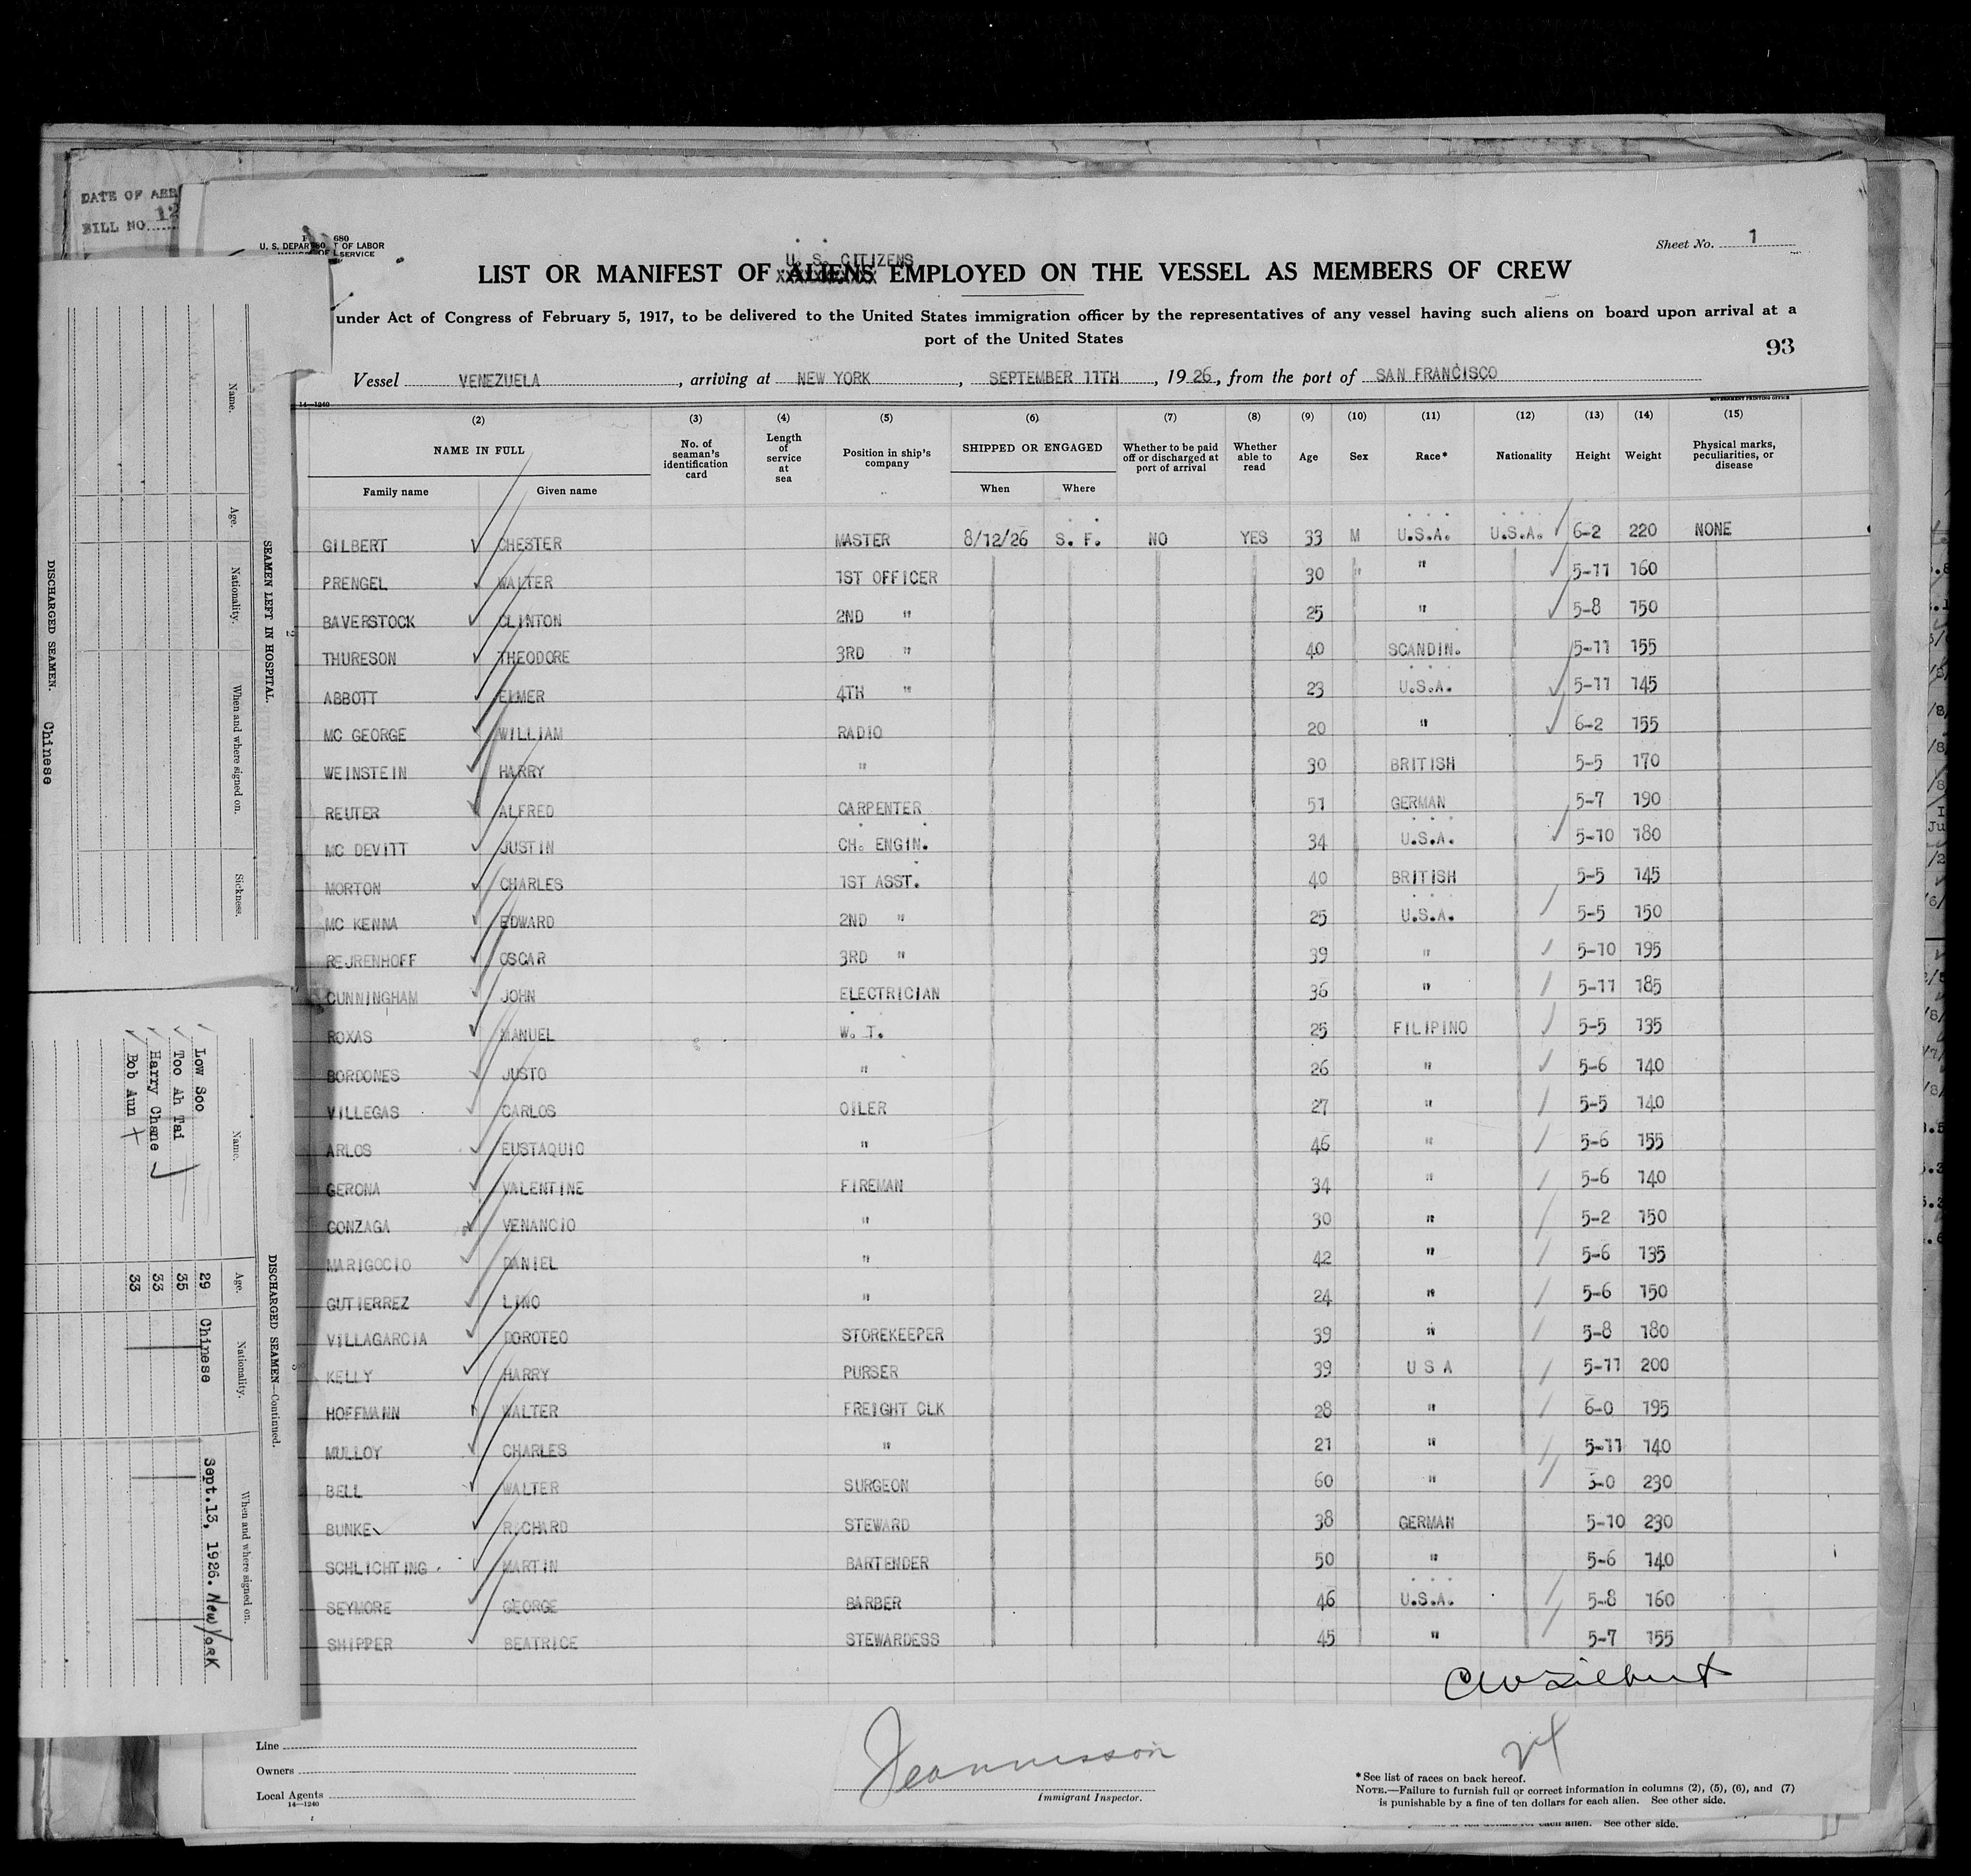 DATE OF ARR
BILL NO. 12
680
U. S. DEPAR T OF LABOR
SERVICE
Sheet No. 1
U. S. CITIZENS
LIST OR MANIFEST OF ALIENS EMPLOYED ON THE VESSEL AS MEMBERS OF CREW
under Act of Congress of February 5, 1917, to be delivered to the United States immigration officer by the representatives of any vessel having such aliens on board upon arrival at a
port of the United States
93
Vessel VENEZUELA, arriving at NEW YORK, SEPTEMBER 11TH, 1926, from the port of SAN FRANCISCO
14—1240
GOVERNMENT PRINTING OFFICE
(2) (3) (4) (5) (6) (7) (8) (9) (10) (11) (12) (13) (14) (15)
NAME IN FULL No. of seaman's identification card Length of service at sea Position in ship's company SHIPPED OR ENGAGED Whether to be paid off or discharged at port of arrival Whether able to read Age Sex Race* Nationality Height Weight Physical marks, peculiarities, or disease
Family name Given name When Where
GILBERT CHESTER MASTER 8/12/26 S. F. NO YES 33 M U.S.A. U.S.A. 6-2 220 NONE
PRENGEL WALTER 1ST OFFICER 30 " " 5-11 160
BAVERSTOCK CLINTON 2ND " 25 " 5-8 150
THURESON THEODORE 3RD " 40 SCANDIN. 5-11 155
ABBOTT ELMER 4TH " 23 U.S.A. 5-11 145
MC GEORGE WILLIAM RADIO 20 " 6-2 155
WEINSTEIN HARRY " 30 BRITISH 5-5 170
REUTER ALFRED CARPENTER 51 GERMAN 5-7 190
MC DEVITT JUSTIN CH. ENGIN. 34 U.S.A. 5-10 180
MORTON CHARLES 1ST ASST. 40 BRITISH 5-5 145
MC KENNA EDWARD 2ND " 25 U.S.A. 5-5 150
REJRENHOFF OSCAR 3RD " 39 " 5-10 195
CUNNINGHAM JOHN ELECTRICIAN 36 " 5-11 185
ROXAS MANUEL W. T. 25 FILIPINO 5-5 135
BORDONES JUSTO " 26 " 5-6 140
VILLEGAS CARLOS OILER 27 " 5-5 140
ARLOS EUSTAQUIO " 46 " 5-6 155
GERONA VALENTINE FIREMAN 34 " 5-6 140
GONZAGA VENANCIO " 30 " 5-2 150
MARIGOCIO DANIEL " 42 " 5-6 135
GUTIERREZ LINO " 24 " 5-6 150
VILLAGARCIA DOROTEO STOREKEEPER 39 " 5-8 180
KELLY HARRY PURSER 39 U S A 5-11 200
HOFFMANN WALTER FREIGHT CLK 28 " 6-0 195
MULLOY CHARLES " 21 " 5-11 140
BELL WALTER SURGEON 60 " 3-0 230
BUNKE RICHARD STEWARD 38 GERMAN 5-10 230
SCHLICHTING MARTIN BARTENDER 50 " 5-6 140
SEYMORE GEORGE BARBER 46 U.S.A. 5-8 160
SHIPPER BEATRICE STEWARDESS 45 " 5-7 155
CW Gilbert
Line
Owners
Local Agents
14—1240
Immigrant Inspector.
*See list of races on back hereof.
NOTE.—Failure to furnish full or correct information in columns (2), (5), (6), and (7)
is punishable by a fine of ten dollars for each alien. See other side.
See other side.
SEAMEN LEFT IN HOSPITAL.
Name. Age. Nationality. When and where signed on. Sickness.
DISCHARGED SEAMEN. Chinese
DISCHARGED SEAMEN—Continued.
Name. Age. Nationality. When and where signed on.
Low Soo 29 Chinese Sept.13, 1926. New York
Too Ah Tai 35
Harry Chane 33
Bob Aun 33